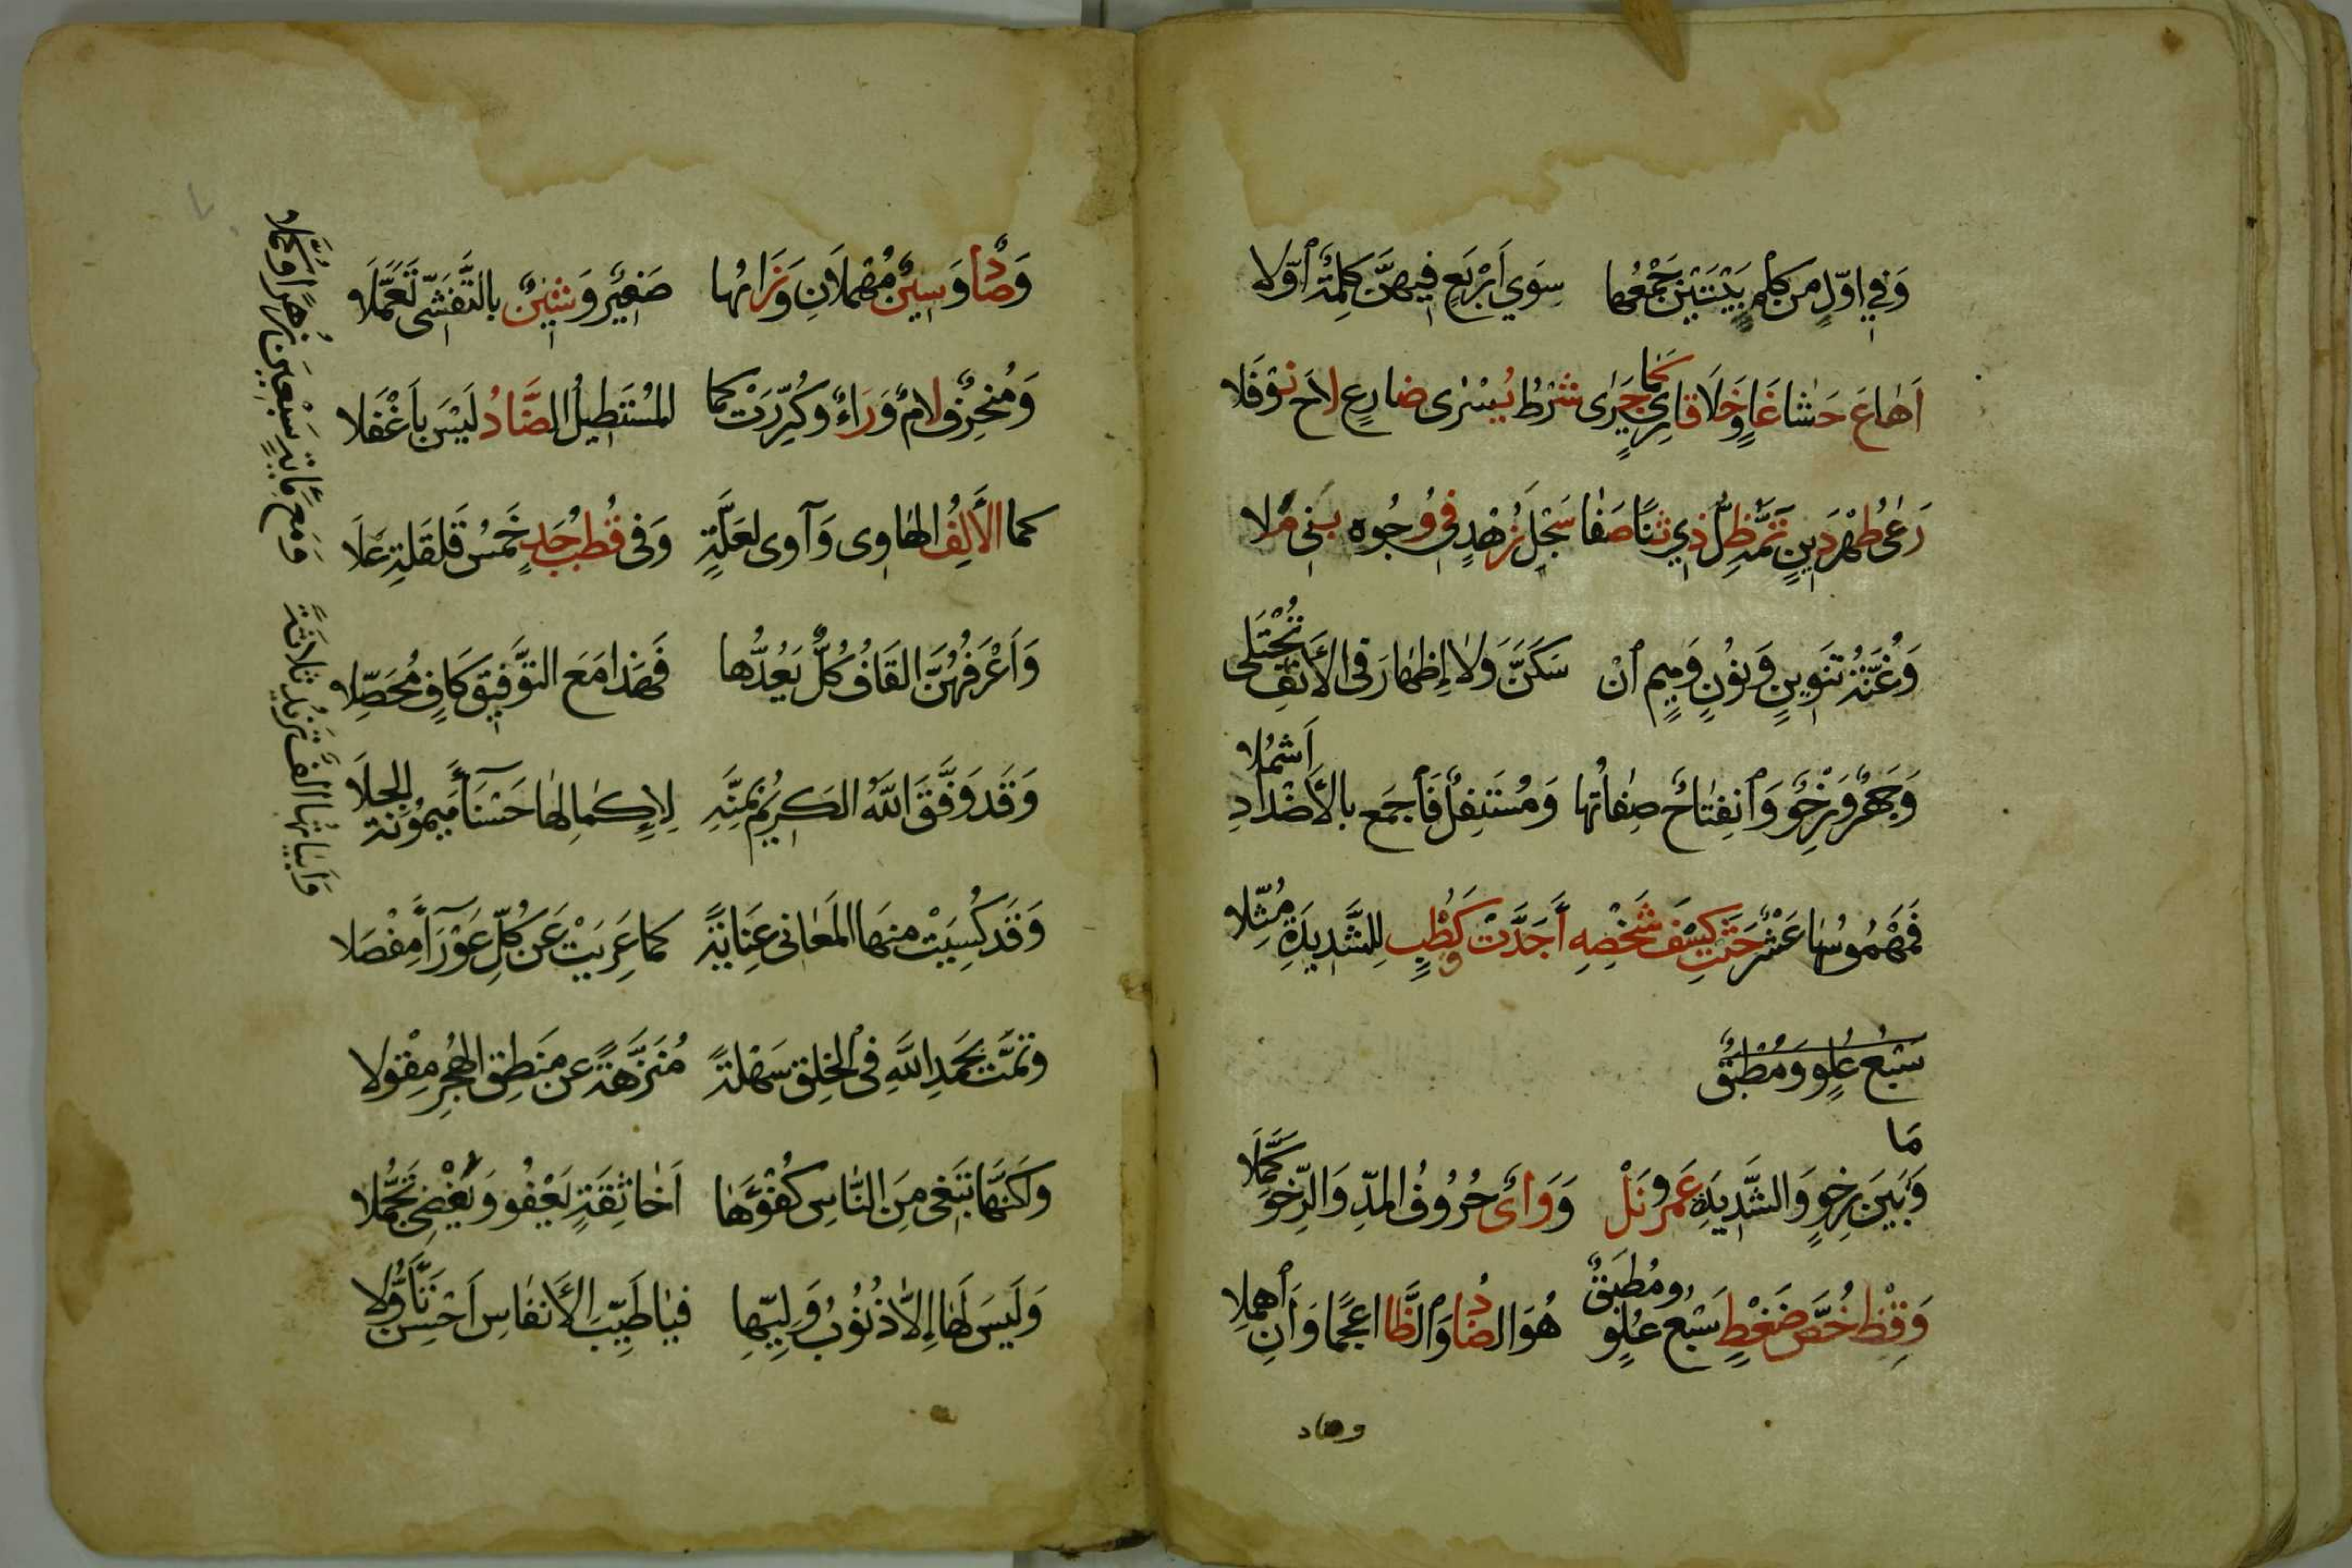 وَفِي اوّلٍ مِن كِلْمِ بَيْتَيْنِ جَمْعُها سِوَي اَرْبَعٍ فِيهِنَّ كِلْمَةٌ اَوَّلا
اَهَاعَ حَشَا غَاوٍ خَلَا قَارِئٍ كَمَا جَرٰى شَرْطُ يُسْرٰى ضَارِعٍ لاحَ نَوْفَلا
رَعٰى طُهْرَ دِينٍ تَمَّهُ ظِلُّ ذِي ثَنًا صَفَا سَجْلُ زُهْدٍ فِي وُجُوهِ بَنِي مَلا
وَغُنَّةُ تَنوِينٍ وَنُونٍ وَمِيمٍ اَنْ سَكَنَّ وَلا إِظهَارَ فى الأَنفِ تُجْتَلى
وَجَهْرٌ وَرِخْوٌ وَاَنفِتَاحٌ صِفَاتُها وَمُسْتَفِلٌ فَاَجمَع بالأَضْدَادِ اَشمُلا
فَمَهْمُوسُهَا عَشْرٌ حَثَتْ كِسْفَ شَخْصِهِ أَجَدَّتْ كَقُطْبٍ لِلشَّدِيدَةِ مُثِّلا
سَبْعُ عُلوٍ وَمُطْبَقٌ
وَمَا بَينَ رِخوٍ وَالشَّدِيدَةِ عَمرُو نَلْ وَوَاىٌ حُرُوفُ المَدِّ وَالرِّخوَ كَمَّلَا
وَقِظْ خُصَّ ضَغْطٍ سَبْعُ عُلوٍ وَمُطبَقٌ هُوَ الضَّادُ وَالظَّا اعجِمَا وَاَنِ اَهمِلا
وصاد
وَصَادٌ وَسِينٌ مُهْمَلَانِ وَزَايُها صَفِيرٌ وَشِينٌ بالتَّفَشِّى تَعَمَّلَا
وَمُنْحَرِفٌ لامٌ وَرَاءٌ وَكُرِّرَتْ كما المُسْتَطِيلُ الضَّادُ لَيْسَ بِاَغْفَلا
كما الأَلِفُ الهَاوِى وَآوى لعَلَّةٍ وَفى قُطبِ جَدٍ خَمْسُ قَلقَلَةٍ عَلَا
وَاَعْرَفُهُنَّ القَافُ كُلٌّ يَعُدُّها فَهَذا مَعَ التَّوفِيقِ كَافٍ مُحَصِّلا
وَقَد وَفَّقَ اللهُ الكَرِيمُ بِمَنِّهِ لِإِكمَالِهَا حَسْنَآءَ مَيمُونَةَ الجِلَا
وَقَد كُسِيَتْ مِنهَا المَعَانى عِنَايَةً كما عَرِيَتْ عَن كُلِّ عَوْرَآءَ مِفْصَلا
وتَمَّت بِحَمدِ اللهِ فى الخَلقِ سَهْلَةً مُنَزَّهَةً عَن مَنطِقِ الهُجرِ مِقْوَلا
وَلكِنَّهَا تَبغِى مِنَ النَّاسِ كُفْؤَهَا اَخَا ثِقَةٍ يَعْفُو وَيُغْضِى تَجَمُّلا
وَلَيسَ لَهَا إِلَّا ذُنُوبُ وَلِيّهَا فيَا طَيِّبَ الأَنفَاسِ اَحْسِن تَأَوُّلا
وَاَبيَاتُهَا اَلفٌ تَزِيدُ ثَلاثَةً وَمَع مِأَيةٍ سَبْعِينَ زُهرًا وَكُمَّلا